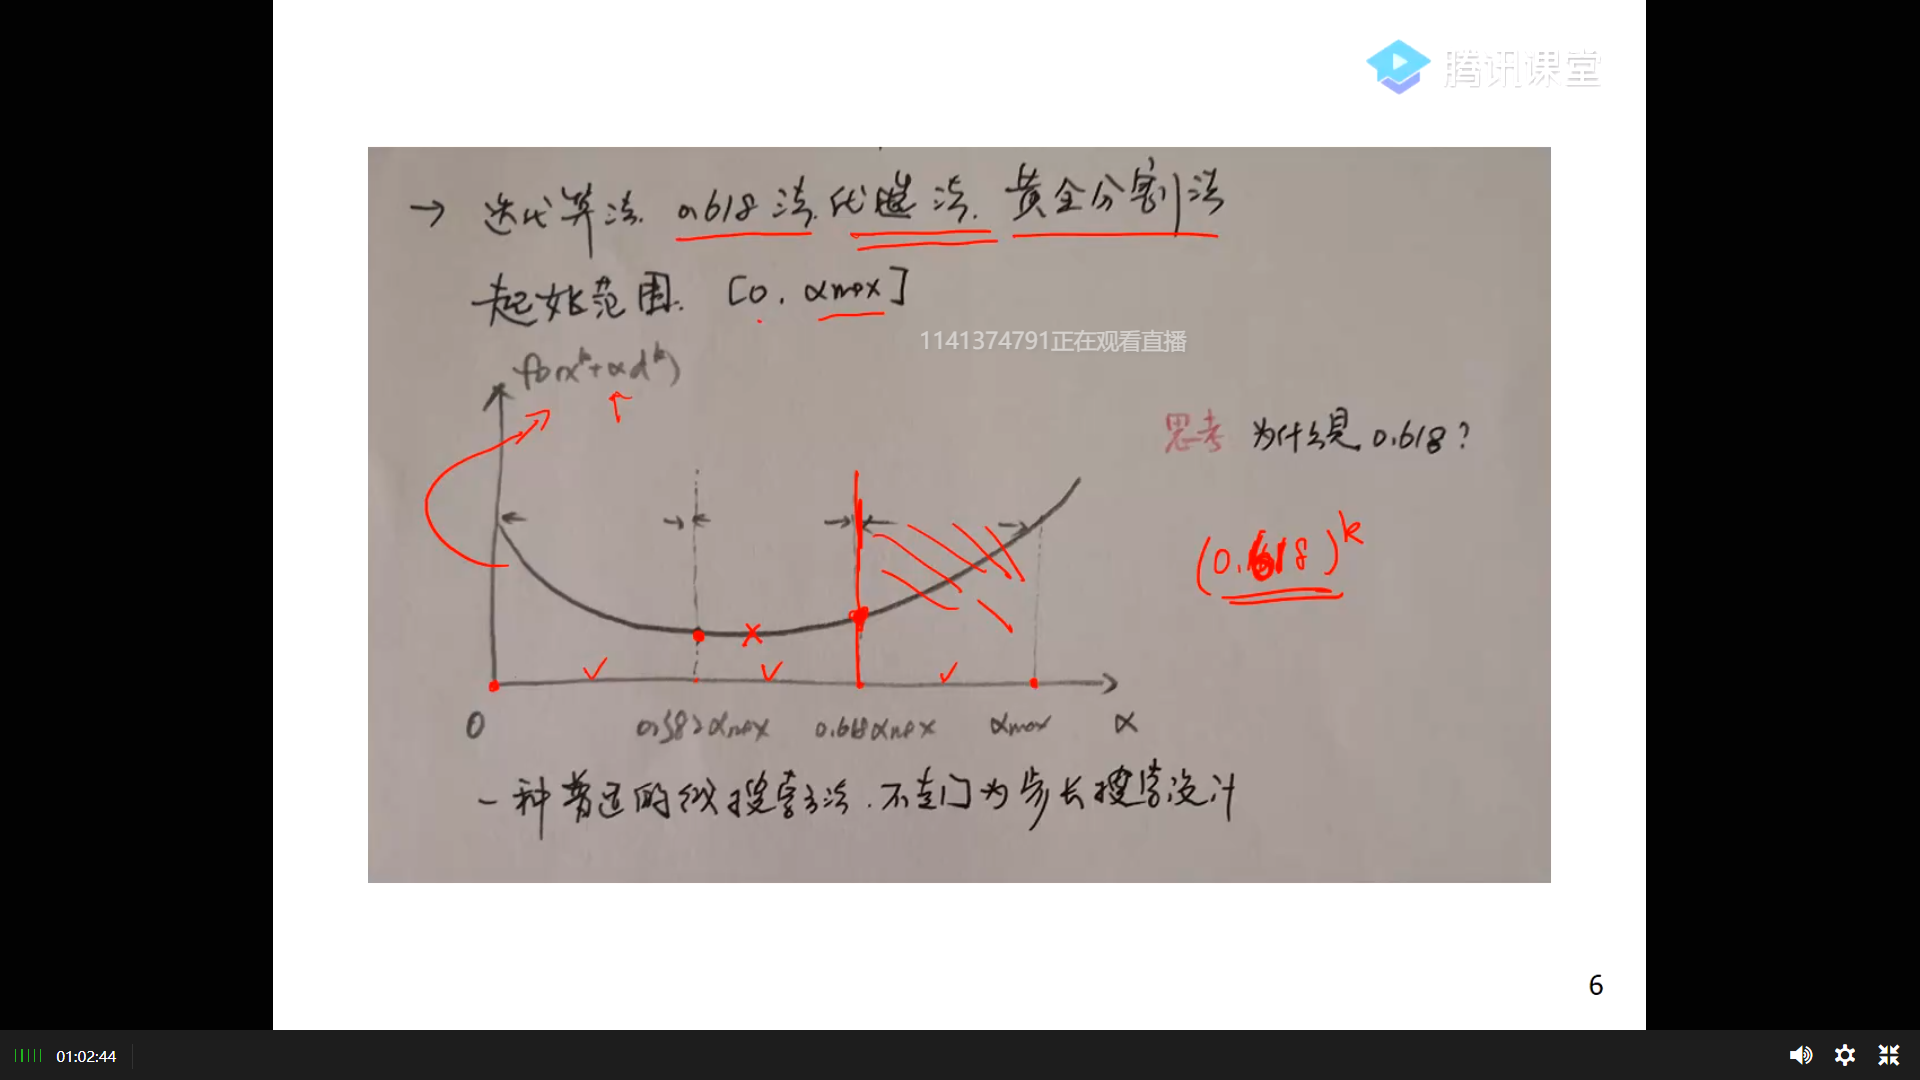 腾讯课堂
→ 迭代算法. 0.618法. 优选法. 黄金分割法
起始范围. [0, αmax]
1141374791正在观看直播
f0(x^k+αd^k)
思考 为什么是 0.618?
(0.618)^k
0 0.382αmax 0.618αmax αmax α
一种普适的线搜索方法. 不专门为步长搜索设计
6
01:02:44